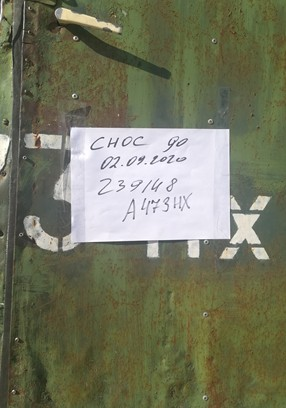 СНОС до
02.09.2020
239148
А473НХ
З НХ